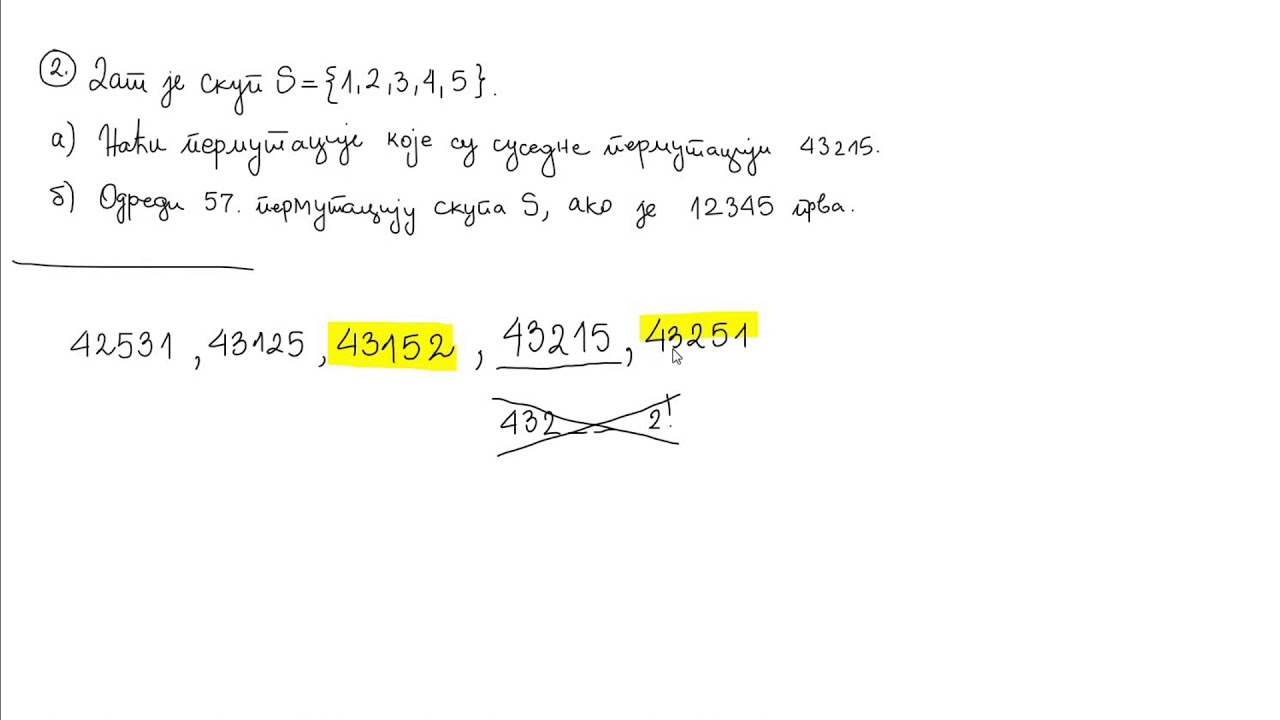 2. Дат је скуп S = {1, 2, 3, 4, 5}.
а) Наћи пермутације које су суседне пермутацији 43215.
б) Одреди 57. пермутацију скупа S, ако је 12345 прва.
42531, 43125, 43152, 43215, 43251
432 _ _ 2!